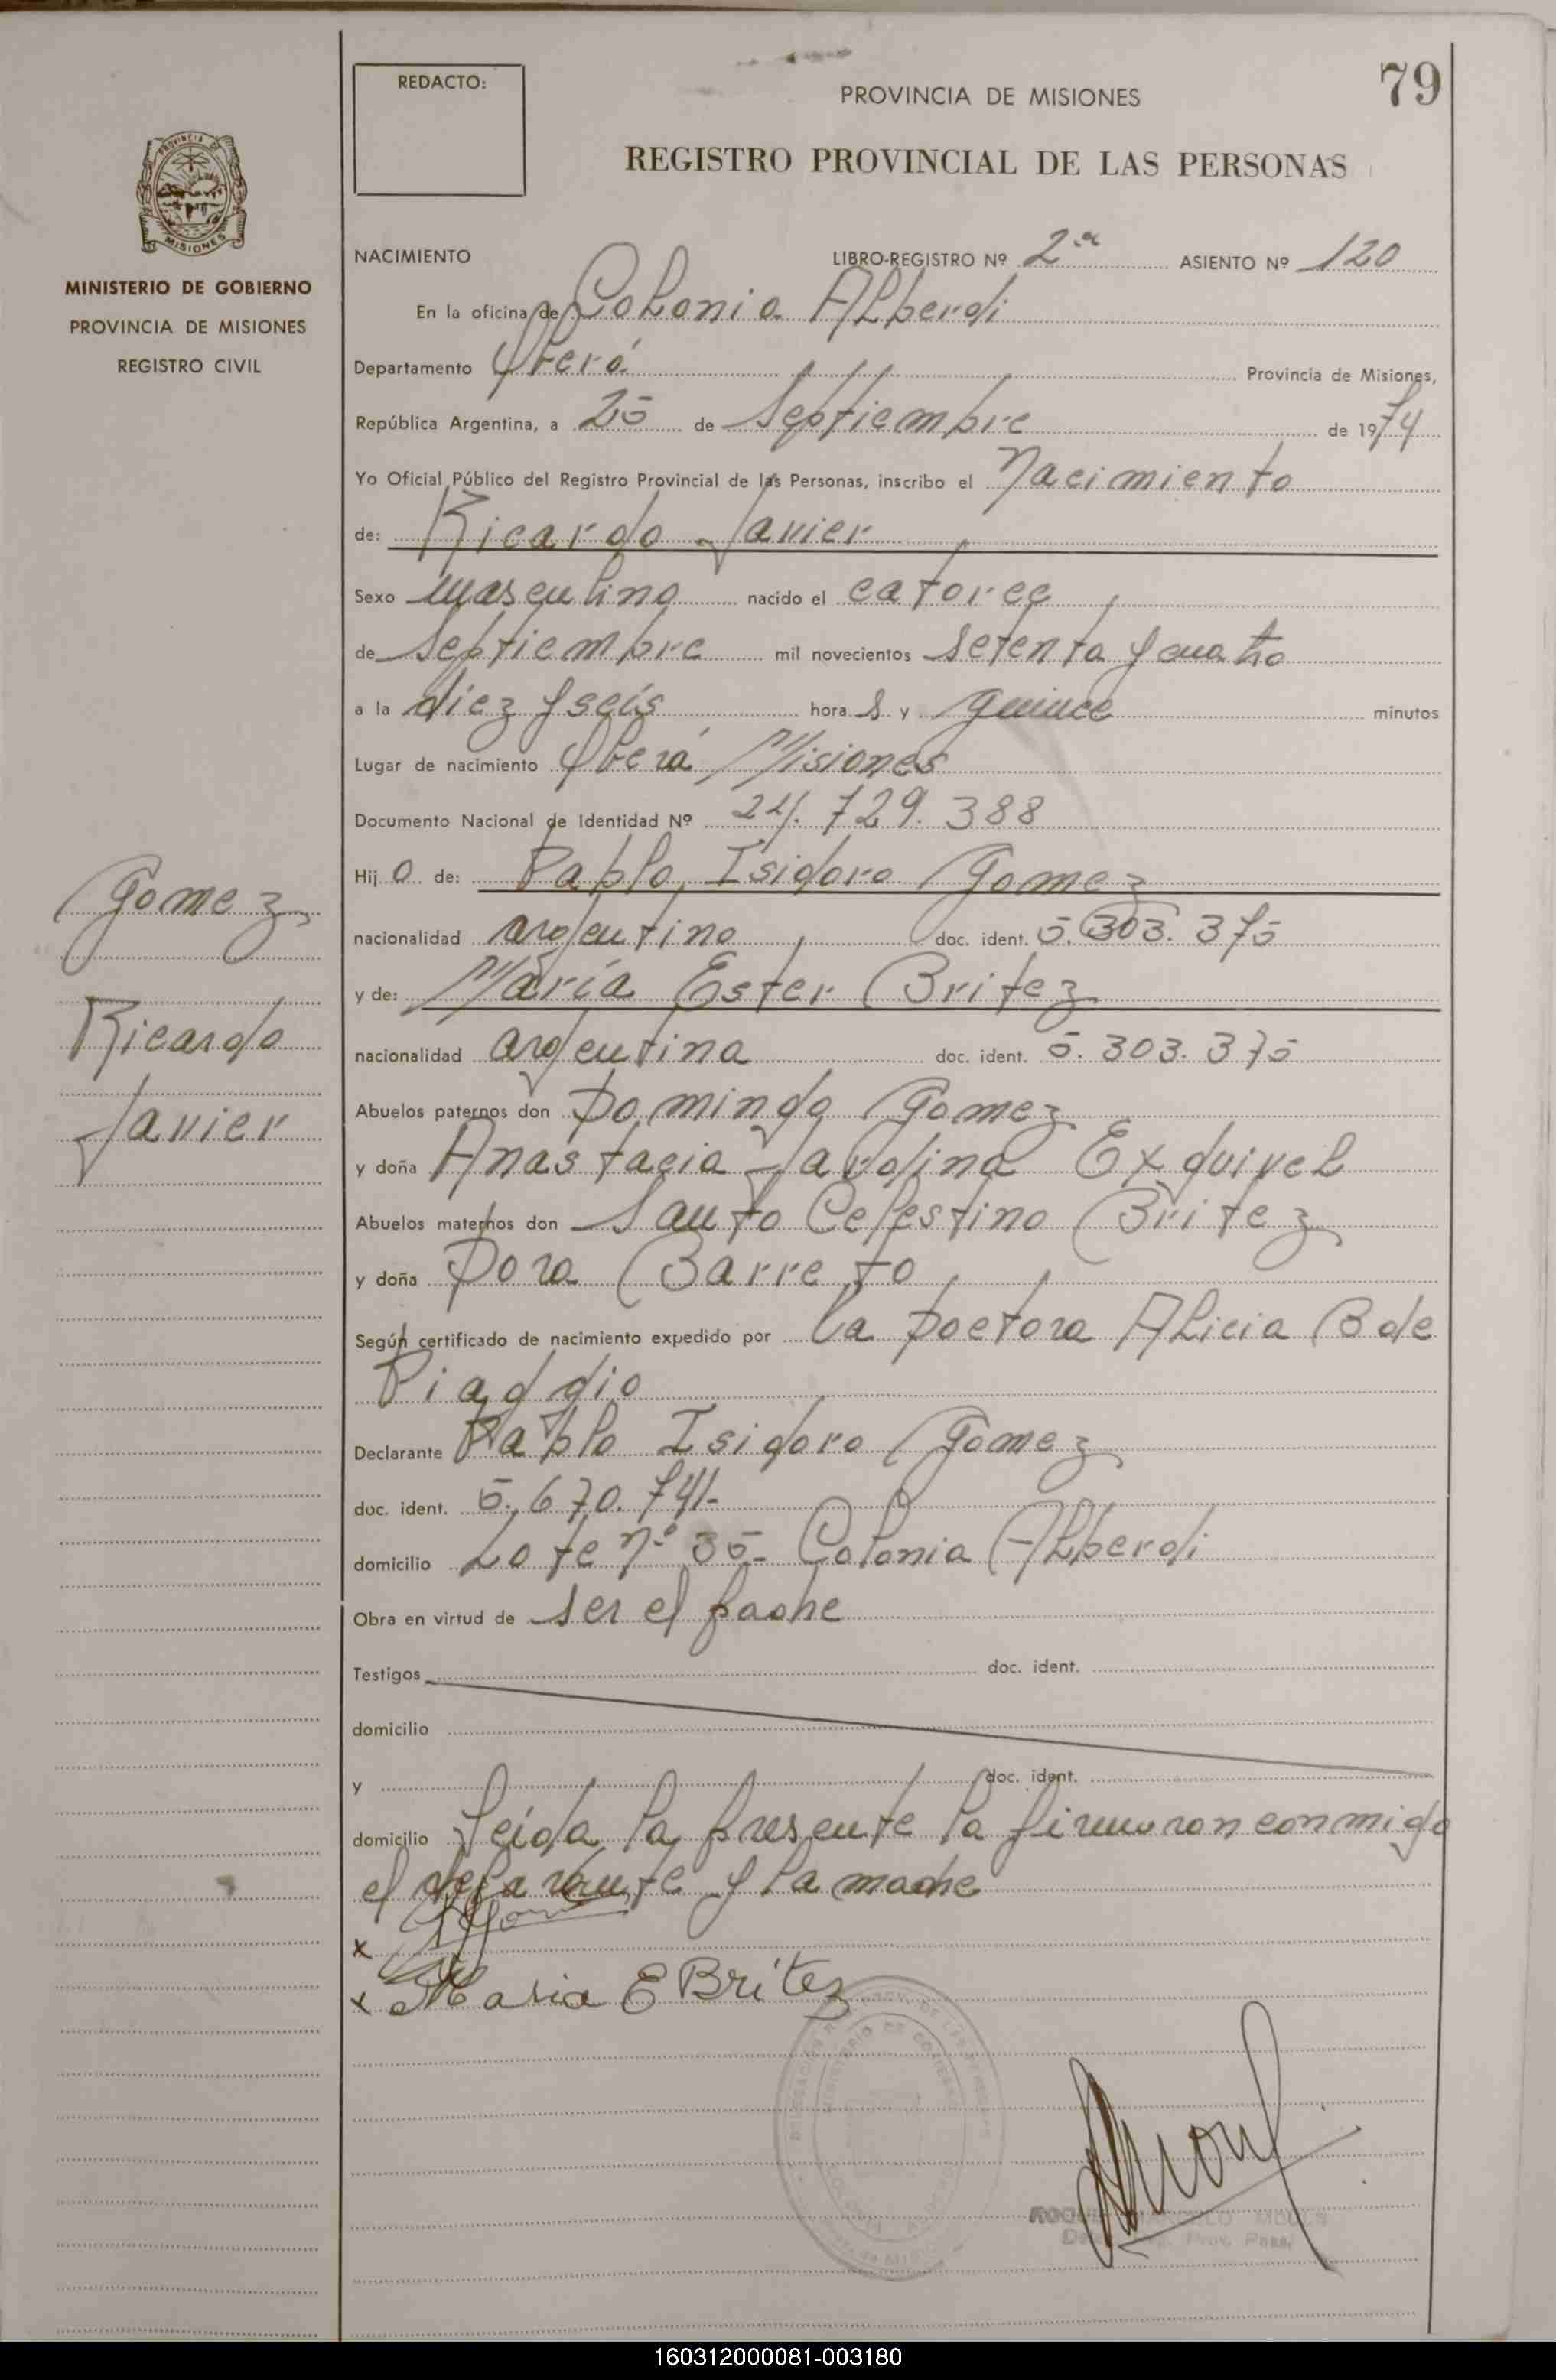 79
REDACTO:
PROVINCIA DE MISIONES
REGISTRO PROVINCIAL DE LAS PERSONAS
MISIONES
MINISTERIO DE GOBIERNO
PROVINCIA DE MISIONES
REGISTRO CIVIL
NACIMIENTO LIBRO-REGISTRO Nº 2ª ASIENTO Nº 120
En la oficina de Colonia Alberdi
Departamento Oberá Provincia de Misiones,
República Argentina, a 25 de Septiembre de 1974
Yo Oficial Público del Registro Provincial de las Personas, inscribo el Nacimiento
de: Ricardo Javier
Sexo masculino nacido el catorce
de Septiembre mil novecientos setenta y cuatro
a la diez y seis hora s y quince minutos
Lugar de nacimiento Oberá Misiones
Documento Nacional de Identidad Nº 24.729.388
Hij o de: Pablo Isidoro Gomez
nacionalidad argentino doc. ident. 5.303.375
y de: María Ester Britez
nacionalidad argentina doc. ident. 5.303.375
Abuelos paternos don Domingo Gomez
y doña Anastacia Jardina Exquivel
Abuelos maternos don Santo Celestino Britez
y doña Dora Barreto
Según certificado de nacimiento expedido por la Doctora Alicia B de
Piaggio
Declarante Pablo Isidoro Gomez
doc. ident. 5.670.741-
domicilio Lote nº 35- Colonia Alberdi
Obra en virtud de ser el padre
Testigos doc. ident.
domicilio
y doc. ident.
domicilio Leida la presente la firmaron conmigo
el declarante y la madre
x
x Maria E Britez
Gomez,
Ricardo
Javier
MINISTERIO DE GOBIERNO
ROQUE
Prov. Pers.
160312000081-003180